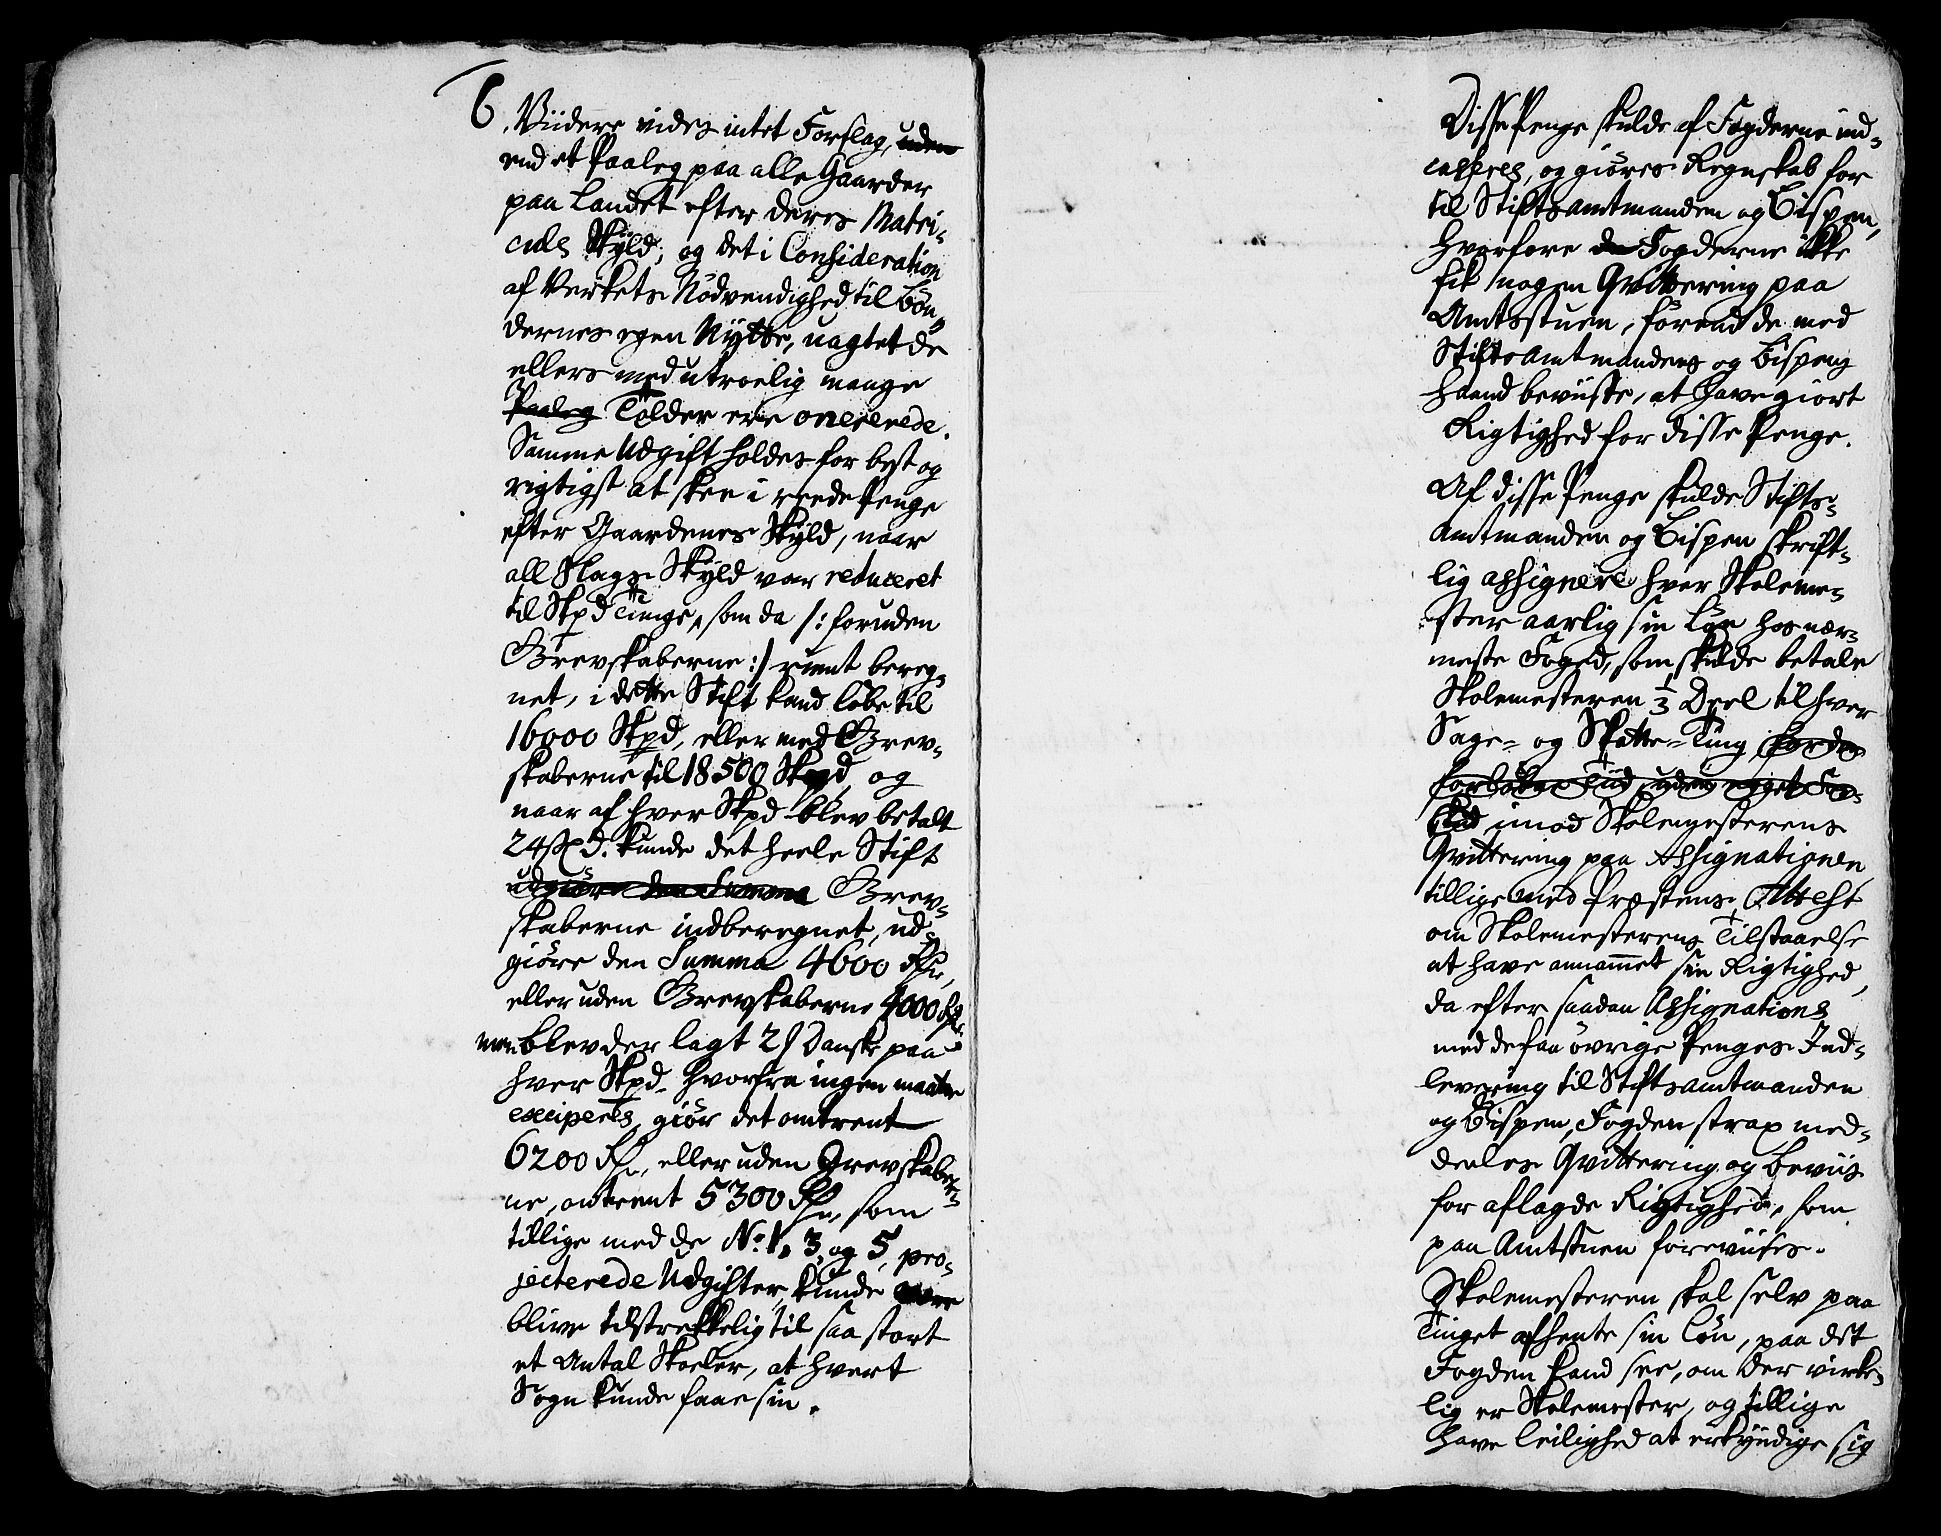 6. Viidere vides intet Forslag, uden
end et Paaleg paa alle Gaarder
paa Landet efter deres Matri-
culs Skÿld, og det i Consideration
af Verkets Nödvendighed til Bön-
dernes egen Nÿtte, uagtet de
ellers med utroelig mange
Paaleg Tolder ere onererede.
Samme Udgift holdes for best og
rigtigst at skee i reede Penge
efter Gaardenes Skÿld, naar
all Slags Skÿld var reduceret
til Skpd Tunge, som da /: foruden
Grevskaberne :/ runt bereg-
net, i dette Stift kand löbe til
16000 Skpd, eller med Grev-
skaberne til 18500 Skpd, og
naar af hver Skpd blev betalt
24 ß d. kunde det heele Stift
udgiöre den Summa Grev-
skaberne indberegnet, ud-
giöre den Summa 4600 Rdr,
eller uden Grevskaberne 4000 Rdr.
men blev der lagt 2 ß Danske paa
hver Skpd hvorfra ingen maatte
exciperes, giör det omtrent
6200 Rdr, eller uden Grevskaber-
ne, omtrent 5300 Rdr, som
tillige med de No. 1, 3, og 5, pro-
jecterede Udgifter, kunde være
blive tilstrekkelig til saa stort
et Antal Skoeler, at hvert
Sogn kunde faae sin.
Disse Penge skulde af Fogderne ind-
casseres, og giöres Regnskab for
til Stiftsamtmanden og Bispen,
hvorfore de Fogderne ikke
fik nogen Qvittering paa
Amtstuen, förend de med
Stiftsamtmandens og Bispens
haand beviiste, at have giort
Rigtighed for disse Penge.
Af disse Penge skulde Stifts-
amtmanden og Bispen skrift-
lig assignere hver Skoleme-
ster aarlig sin Lön hos nær-
meste Foged, som skulde betale
Skolemesteren 1/3 Deel til hver
Sage- og Skatte-Ting for den
forlöbne Tiid, uden noget For-
skud imod Skolemesterens
Qvittering paa Assignationen
tillige med Præstens Attest
om Skolemesterens Tilstaaelse
at have annammet sin Rigtighed,
da efter saadan Assignations
med de faa övrige Penges Ind-
levering til Stiftsamtmanden
og Bispen, Fogden strax med-
deeles Qvittering og beviis
for aflagde Rigtighed, som
paa Amtstuen foreviises.
Skolemesteren skal selv paa
Tinget afhente sin Lön, paa det
Fogden kand see, om der virke-
lig er Skolemester, og tillige
have leilighed at erkÿndige sig